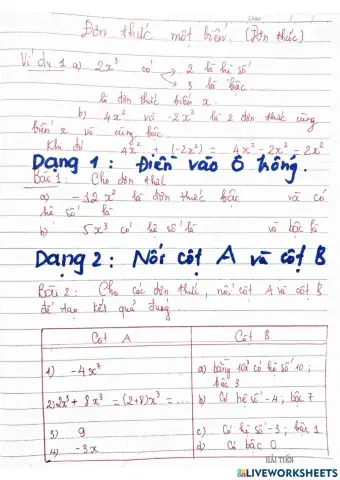 Đơn thức một biến. (Đơn thức)
Ví dụ 1 a) 2x³ có → 2 là hệ số
→ 3 là bậc
là đơn thức biến x.
b) 4x² và -2x² là 2 đơn thức cùng
biến x và cùng bậc.
Khi đó 4x² + (-2x²) = 4x² - 2x² = 2x²
Dạng 1 : Điền vào ô trống.
Bài 1: Cho đơn thức
a) -12x² là đơn thức bậc và có
hệ số là
b) 5x³ có hệ số là và bậc là
Dạng 2 : Nối cột A và cột B
Bài 2: Cho các đơn thức, nối cột A và cột B
để tạo kết quả đúng
Cột A Cột B
1) -4x⁷ a) bằng 10x³ có hệ số 10;
bậc 3
2) 2x³ + 8x³ = (2+8)x³ = .... b) Có hệ số -4; bậc 7
3) 9 c) Có hệ số -3; bậc 1
4) -3x d) Có bậc 0
HẢI TIẾN
LIVEWORKSHEETS